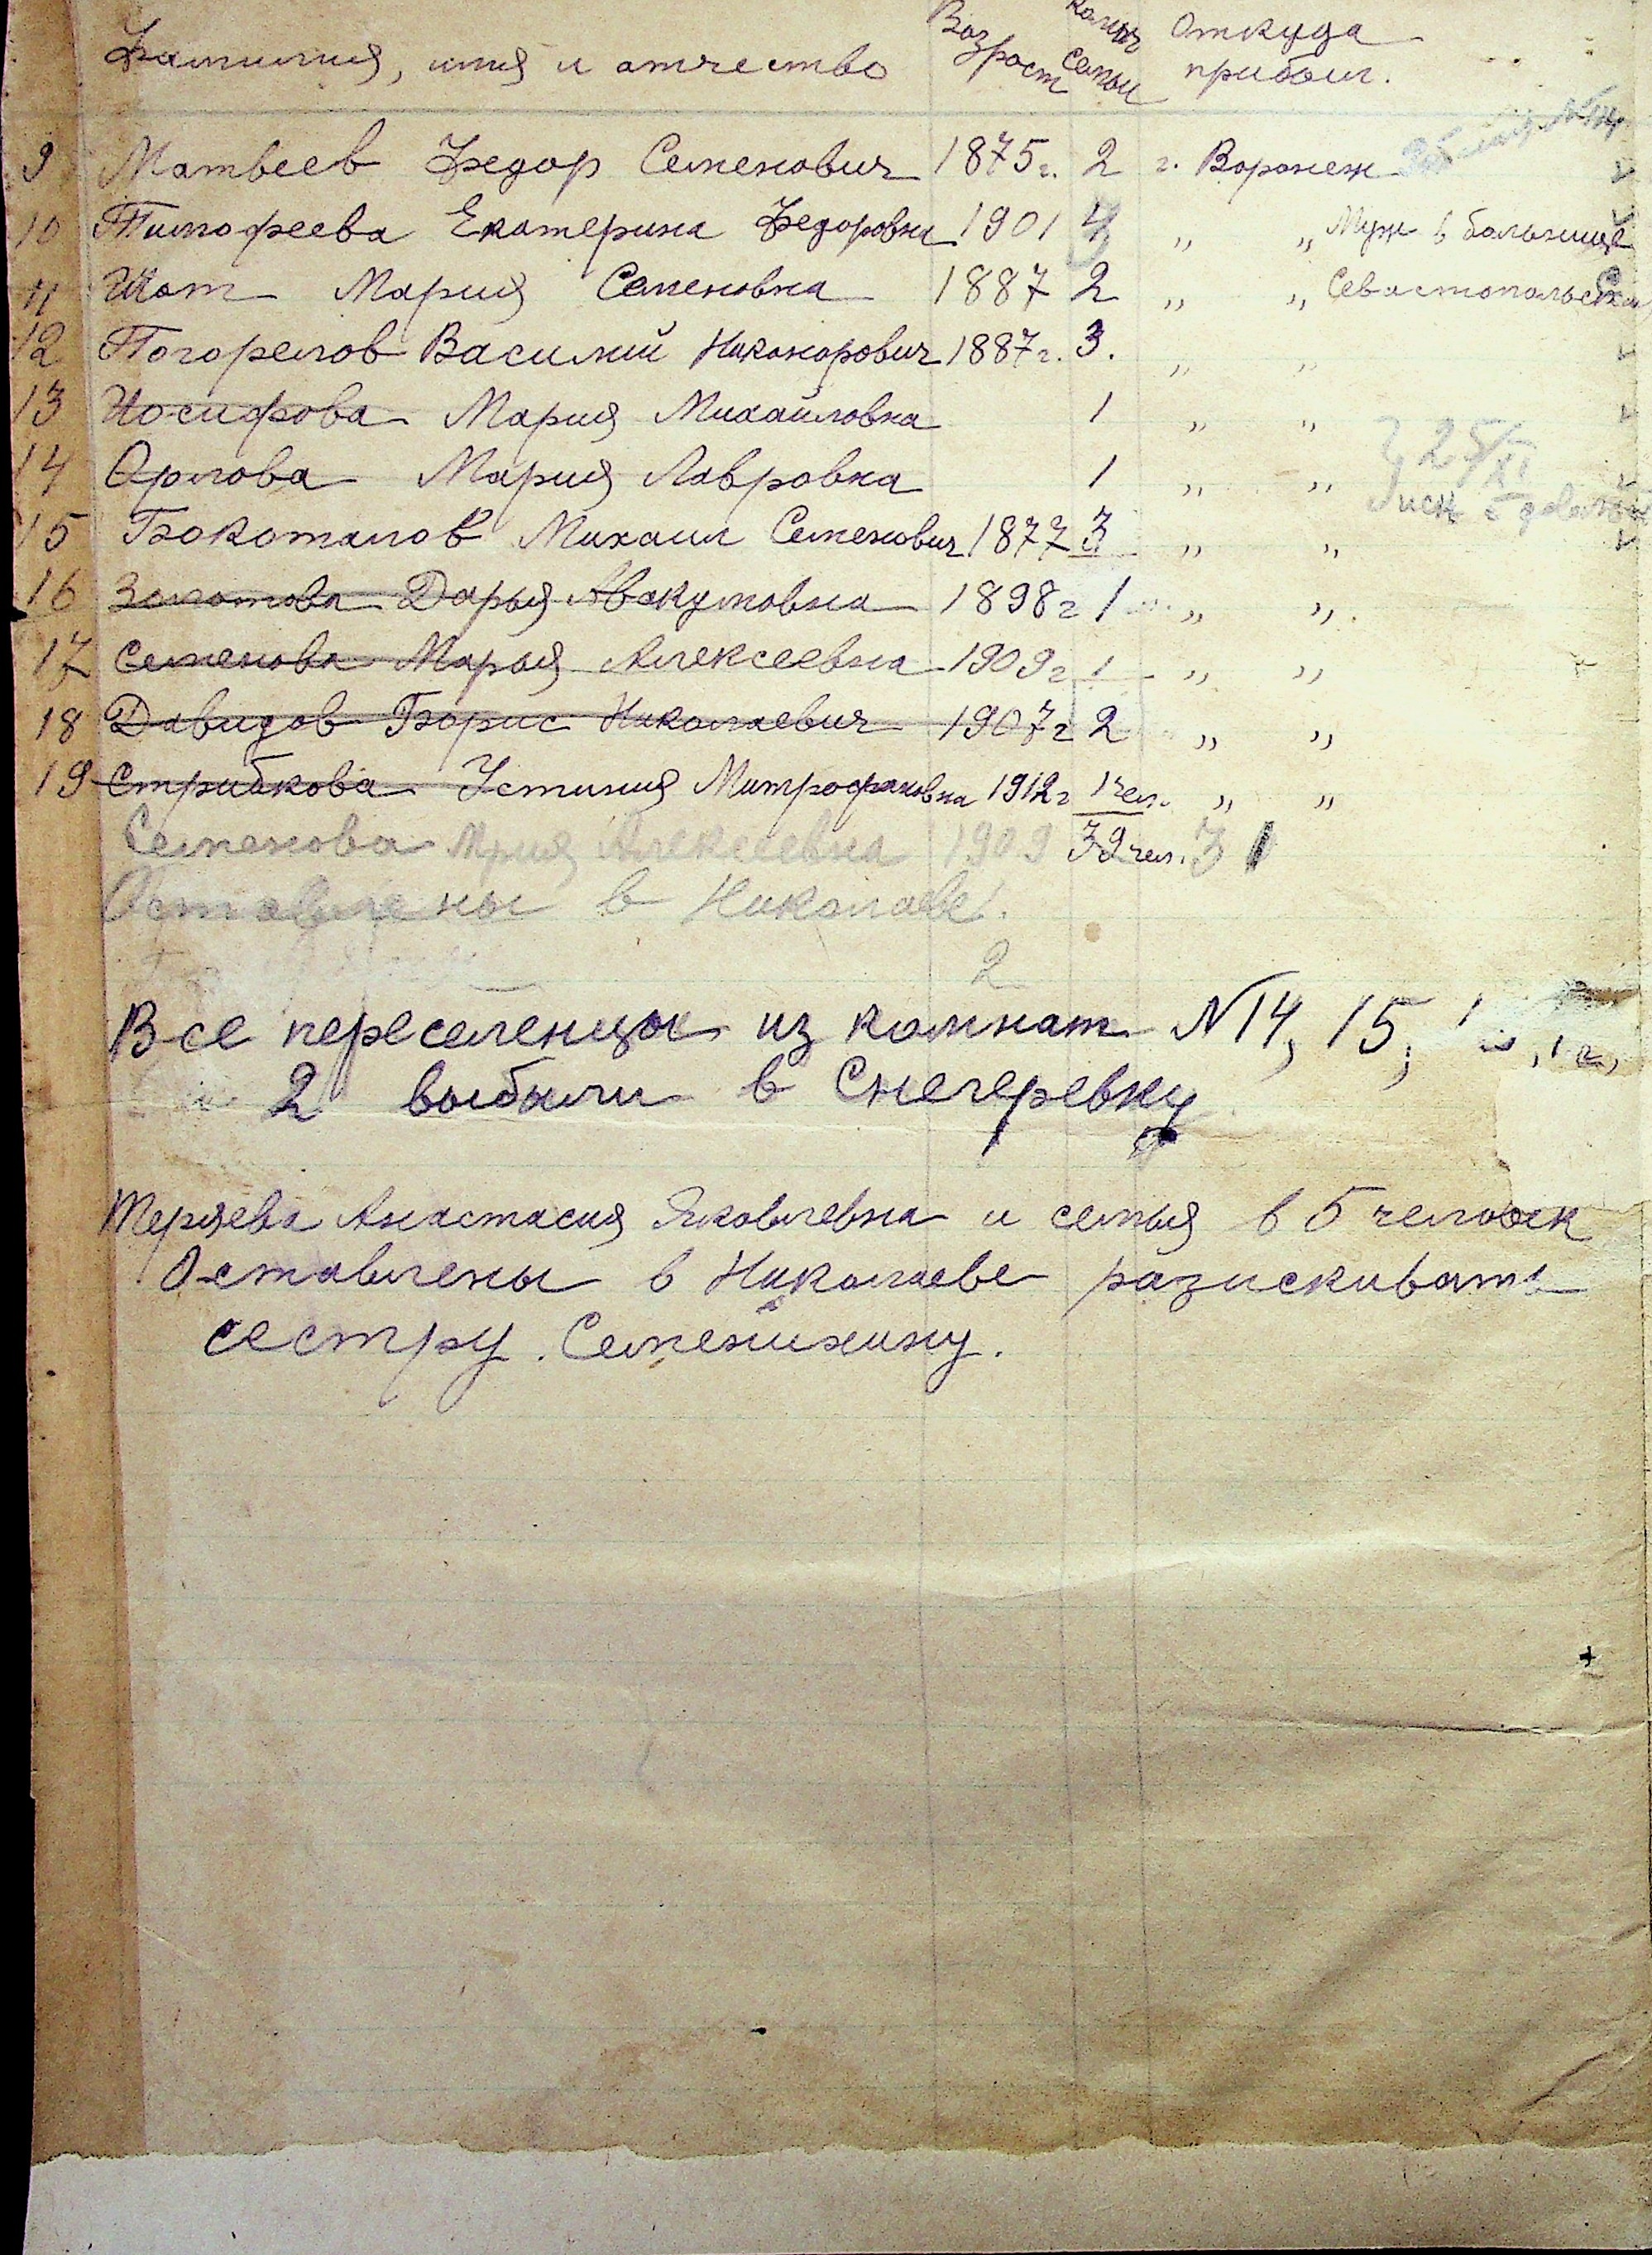 Фамилия, имя и отчество Воз колич Откуда
раст семьи прибыл.
9 Матвеев Федор Семенович 1875г. 2 г. Воронеж
10 Тимофеева Екатерина Федоровна 1901 4 „ „ Муж в больнице
11 Шот Мария Семеновна 1887 2 „ „ Севастопольск
12 Погорелов Василий Никонорович 1887г. 3. „ „
13 Иосифова Мария Михайловна 1 „ „
14 Орлова Мария Лавровна 1 „ „ 25/XI
15 Бокоталов Михаил Семенович 1877 3 „ „
16 Золотова Дарья Авакумовна 1898г 1 „ „
17 Семенова Марья Алексеевна 1909г 1 „ „
18 Давидов Борис Николаевич 1907г 2 „ „
19 Стрибкова Устиния Митрофановна 1912г 1 чел. „ „
Семенова Мрия Алексеевна 1909 39 чел. 31
Оставлены в Николаеве.
2
Все переселенцы из комнат №14, 15,
2 выбыли в Снегеревку
Теряева Анастасия Яковлевна и семья в 5 человек
Оставлены в Николаеве розискивать
сестру. Семенихину.